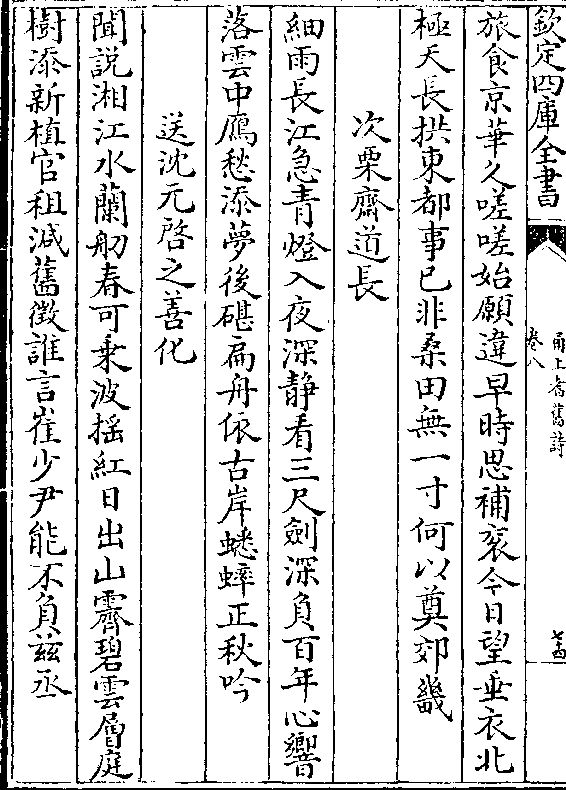 欽定四庫全書
甬上耆舊詩
卷八
旅食京華久嗟嗟始願違早時思補衮今日望垂衣北
極天長拱東都事已非桑田無一寸何以奠郊畿
次栗齋道長
細雨長江急青燈入夜深静看三尺劍深負百年心響
落雲中鴈愁添夢後碪扁舟依古岸蟋蟀正秋吟
送沈元啓之善化
聞説湘江水蘭舠春可乗波摇紅日出山霽碧雲層庭
樹添新植官租減舊徴誰言崔少尹能不負兹丞